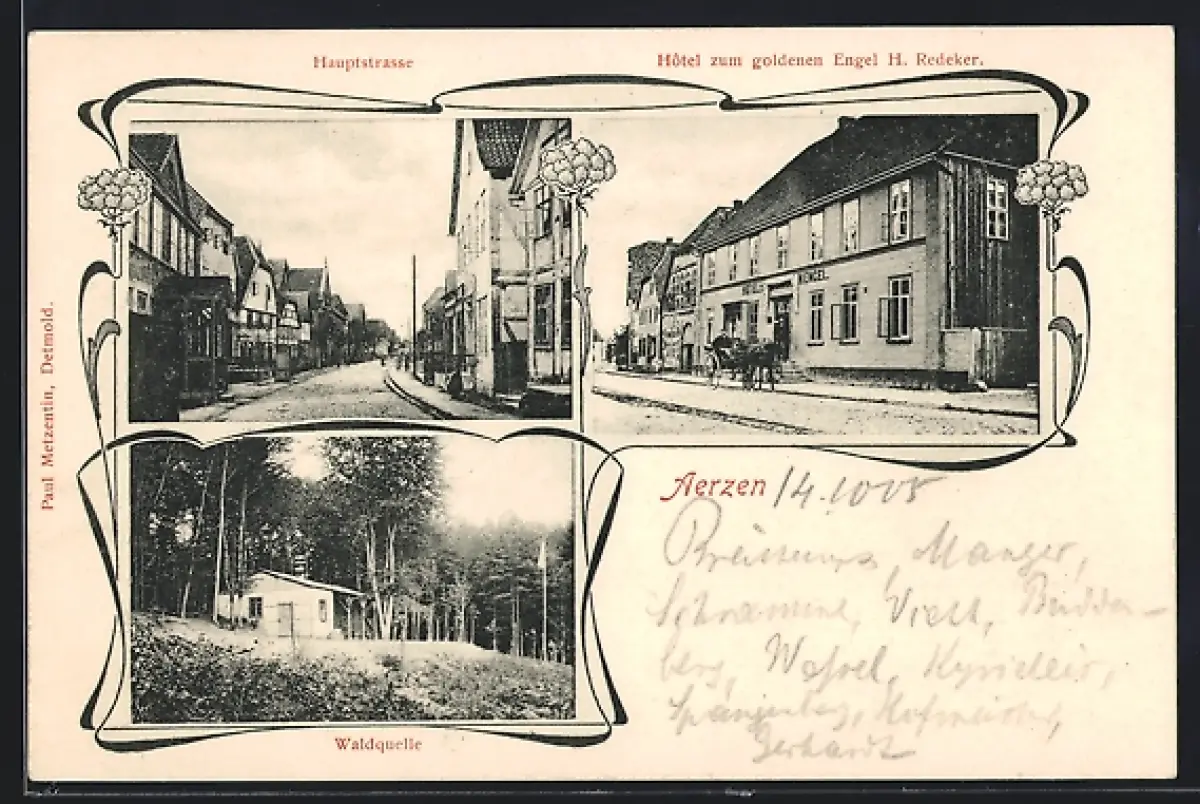 Hauptstrasse
Hôtel zum goldenen Engel H. Redeker.
HOTEL
Z. ENGEL.
Paul Metzentin, Detmold.
Aerzen 14.10 05
Manger,
Viett, Budden-
berg, Wessel,
Spangenberg, Hofmeister,
Gerhardt
Waldquelle